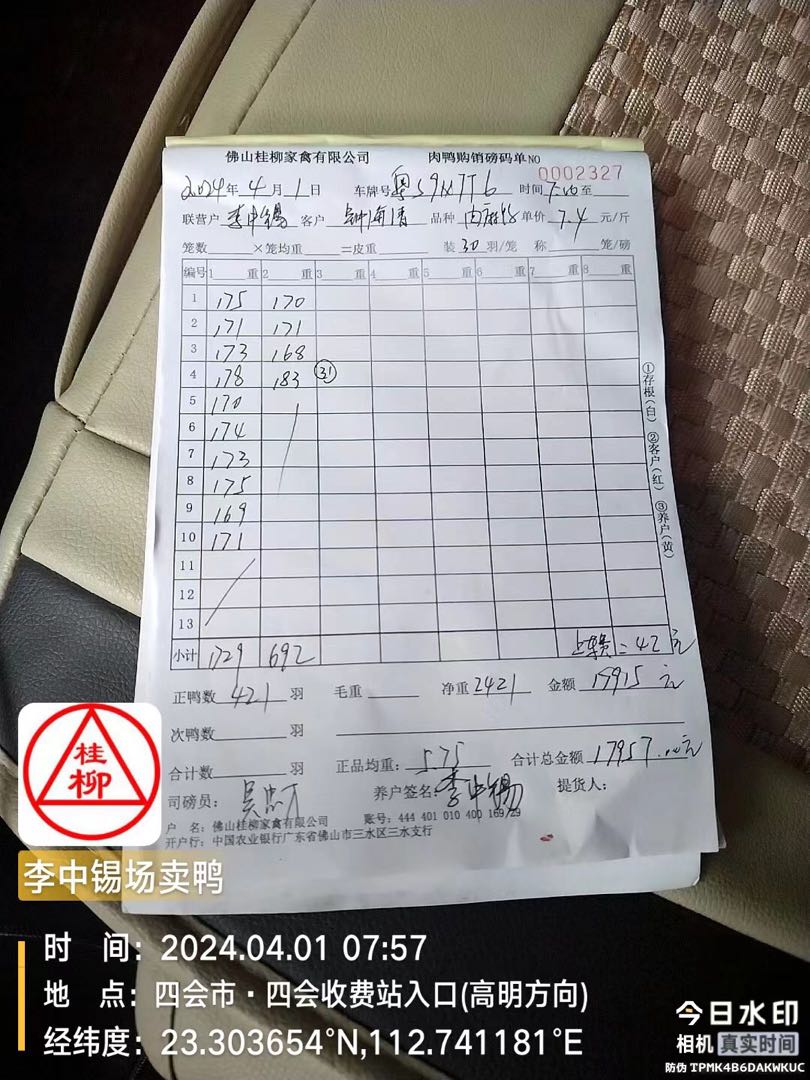 佛山桂柳家禽有限公司 肉鸭购销磅码单 NO 0002327
2024年4月1日 车牌号 粤S9N7T6 时间 7:10 至
联营户 李中锡 客户 品种 单价 7.4 元/斤
笼数 ×笼均重 =皮重 装 30 羽/笼 称 笼/磅
编号 1 重 2 重 3 重 4 重 5 重 6 重 7 重 8 重
1 175 170
2 171 171
3 173 168
4 178 183 ㉛
5 170
6 174
7 173
8 175
9 169
10 171
11
12
13
小计 1729 692 上车费:42元
正鸭数 421 羽 毛重 净重 2421 金额 17915元
次鸭数 羽
合计数 羽 正品均重: 5.75 合计总金额 17957.00元
司磅员: 养户签名: 李中锡 提货人:
户 名: 佛山桂柳家禽有限公司 账号: 444 401 010 400 169 29
开户行: 中国农业银行广东省佛山市三水区三水支行
①存根(白) ②客户(红) ③养户(黄)
桂
柳
李中锡场卖鸭
时 间: 2024.04.01 07:57
地 点: 四会市·四会收费站入口(高明方向)
经纬度: 23.303654°N,112.741181°E
今日水印
相机 真实时间
防伪 TPMK4B6DAKWKUC